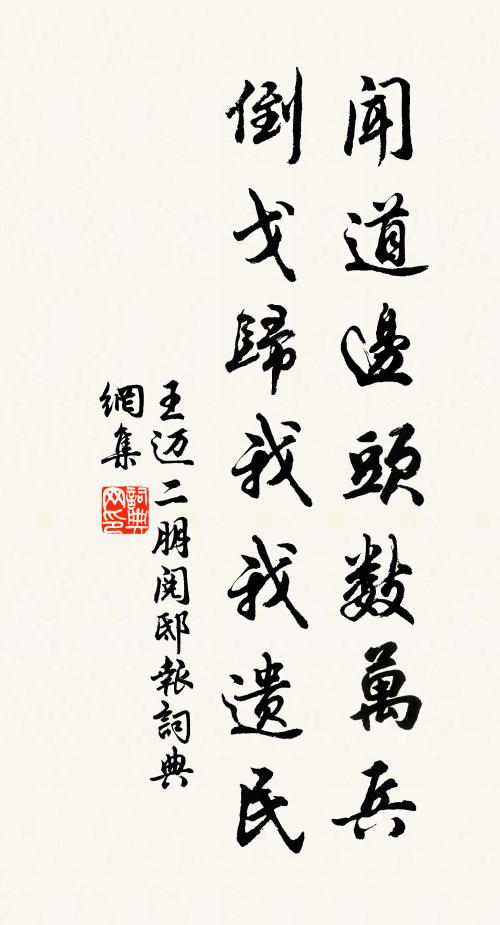 闻道邊頭数萬兵
倒戈歸我我遗民
王迈二朋阅邸報詞典
網集
詞典
网印